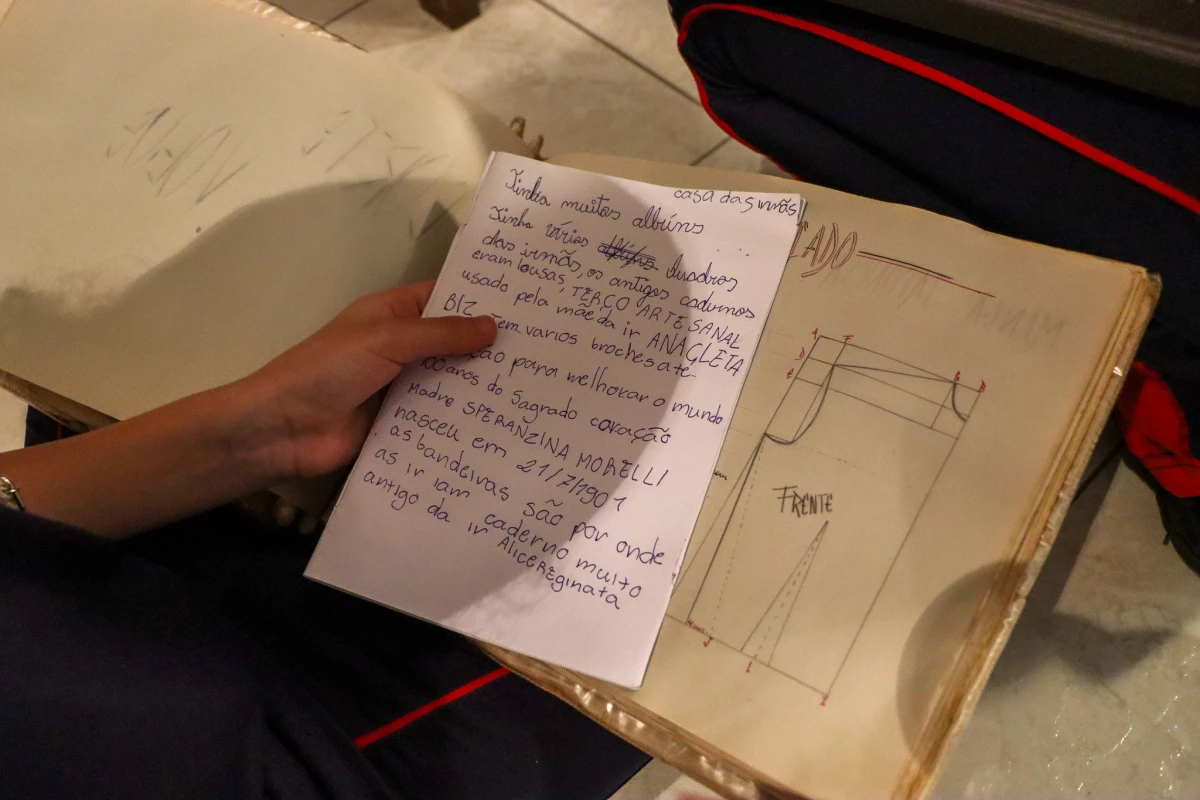 casa das irmãs
Tinha muitos albúns
Tinha vários Quadros
das irmãs, os antigos cadernos
eram lousas, TERÇO ARTESANAL
usado pela mãe da ir ANAGLETA
BIZ tem varios broches ate-
ção para melhorar o mundo
100 anos do Sagrado coração
Madre SPERANZINA MORELLI
nasceu em 21/7/1901
as bandeiras são por onde
as ir iam caderno muito
antigo da ir Alicereginata
FRENTE